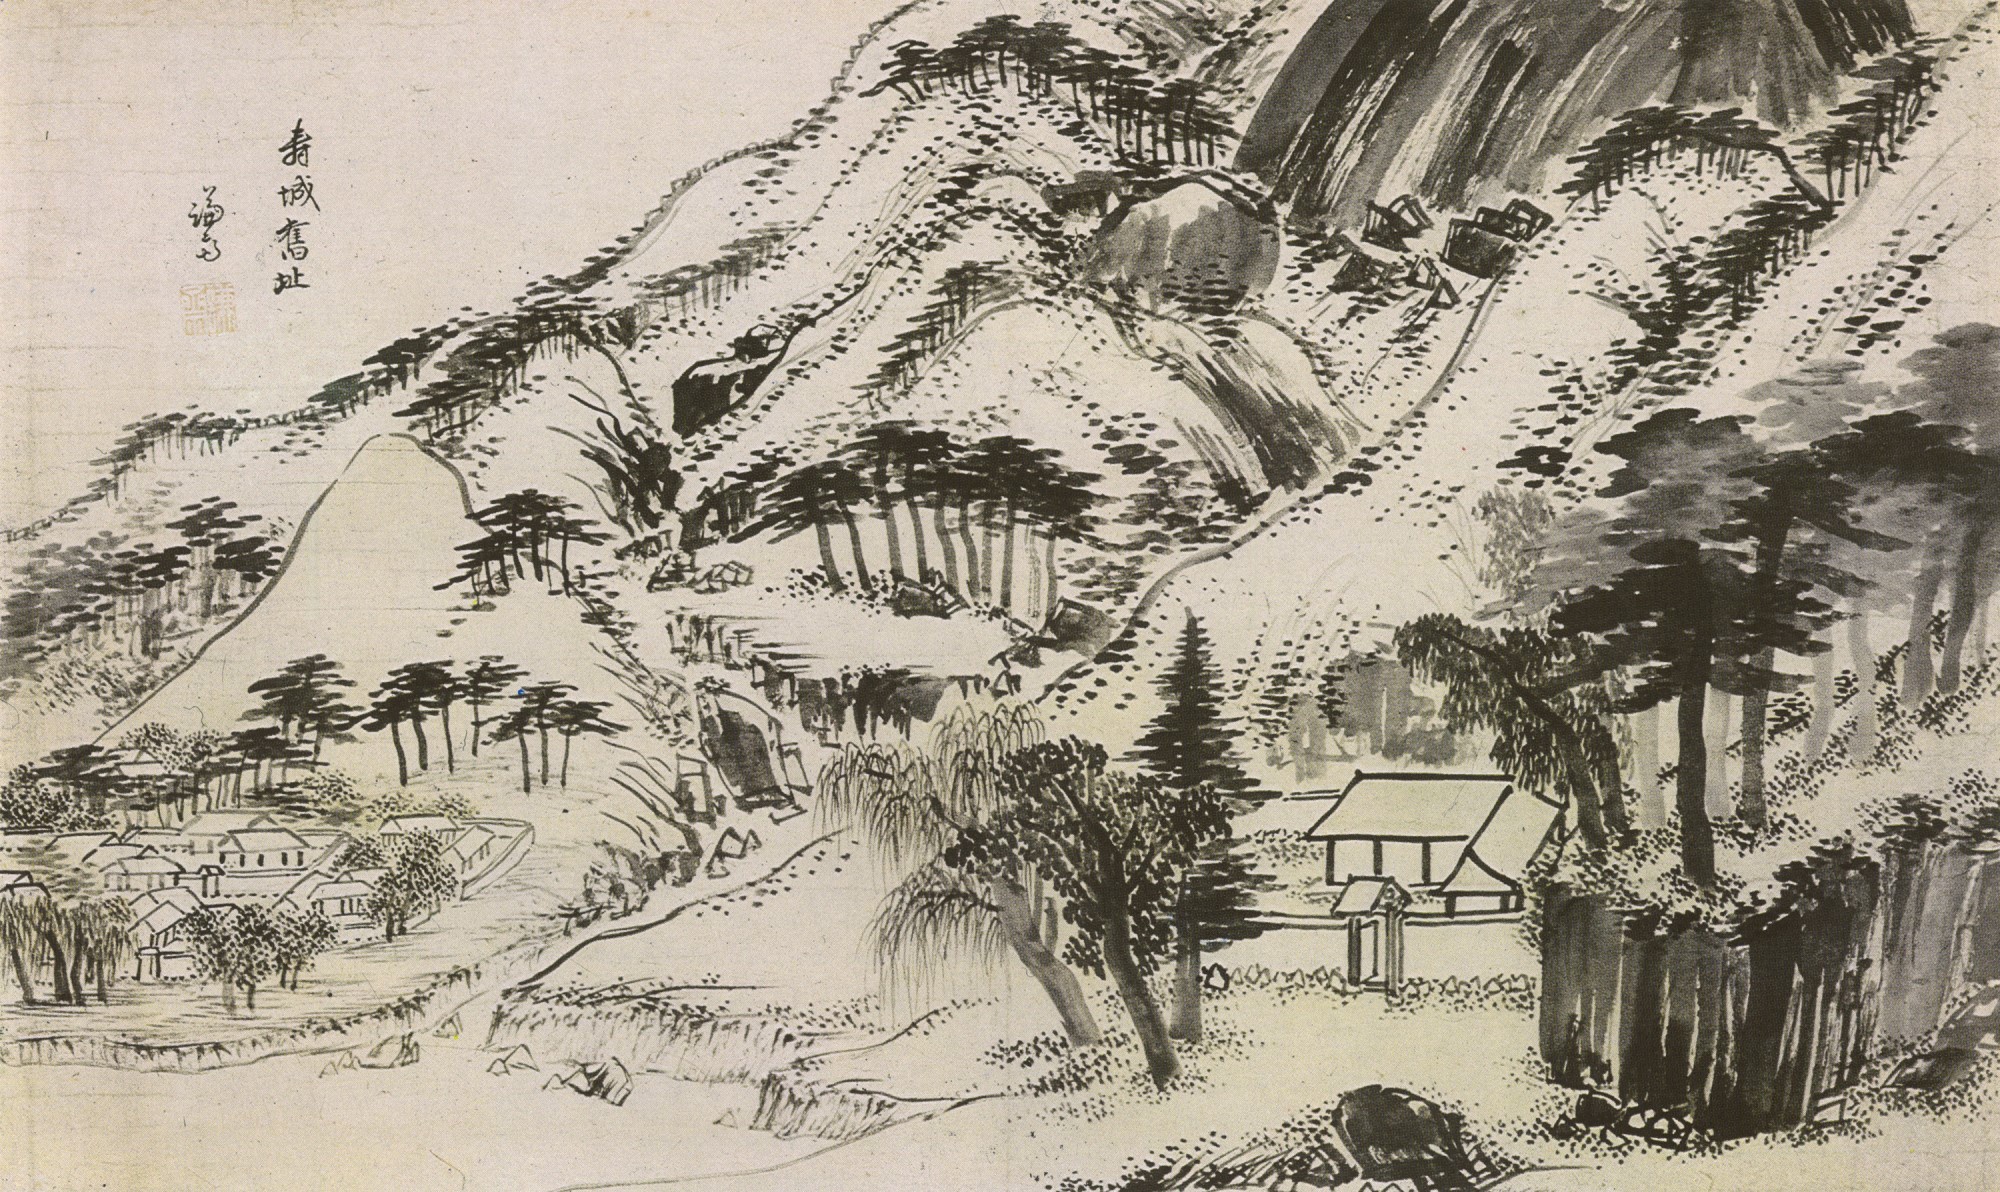 壽城舊址
謙齋